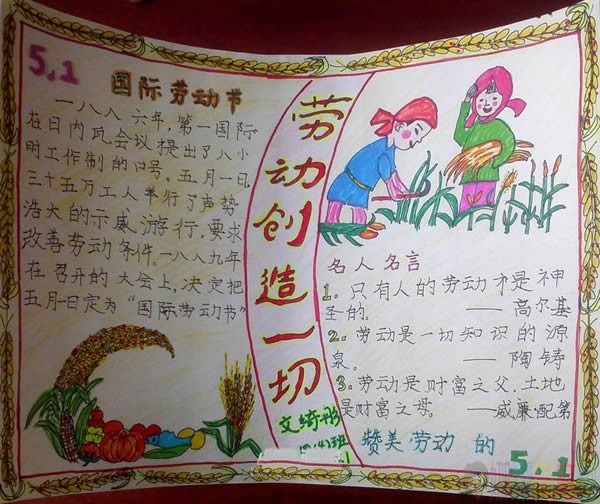 5.1
国际劳动节
一八八六年,第一国际
在日内瓦会议提出了八小
时工作制的口号。五月一日,
三十五万工人举行了声势
浩大的示威游行,要求
改善劳动条件.一八八九年
在召开的大会上,决定把
五月一日定为“国际劳动节”
劳动创造一切
文绮彤
名人名言
1。只有人的劳动才是神
圣的。——高尔基
2。劳动是一切知识的源
泉。——陶铸
3。劳动是财富之父.土地
是财富之母。——威廉·配第
赞美劳动的
5.1